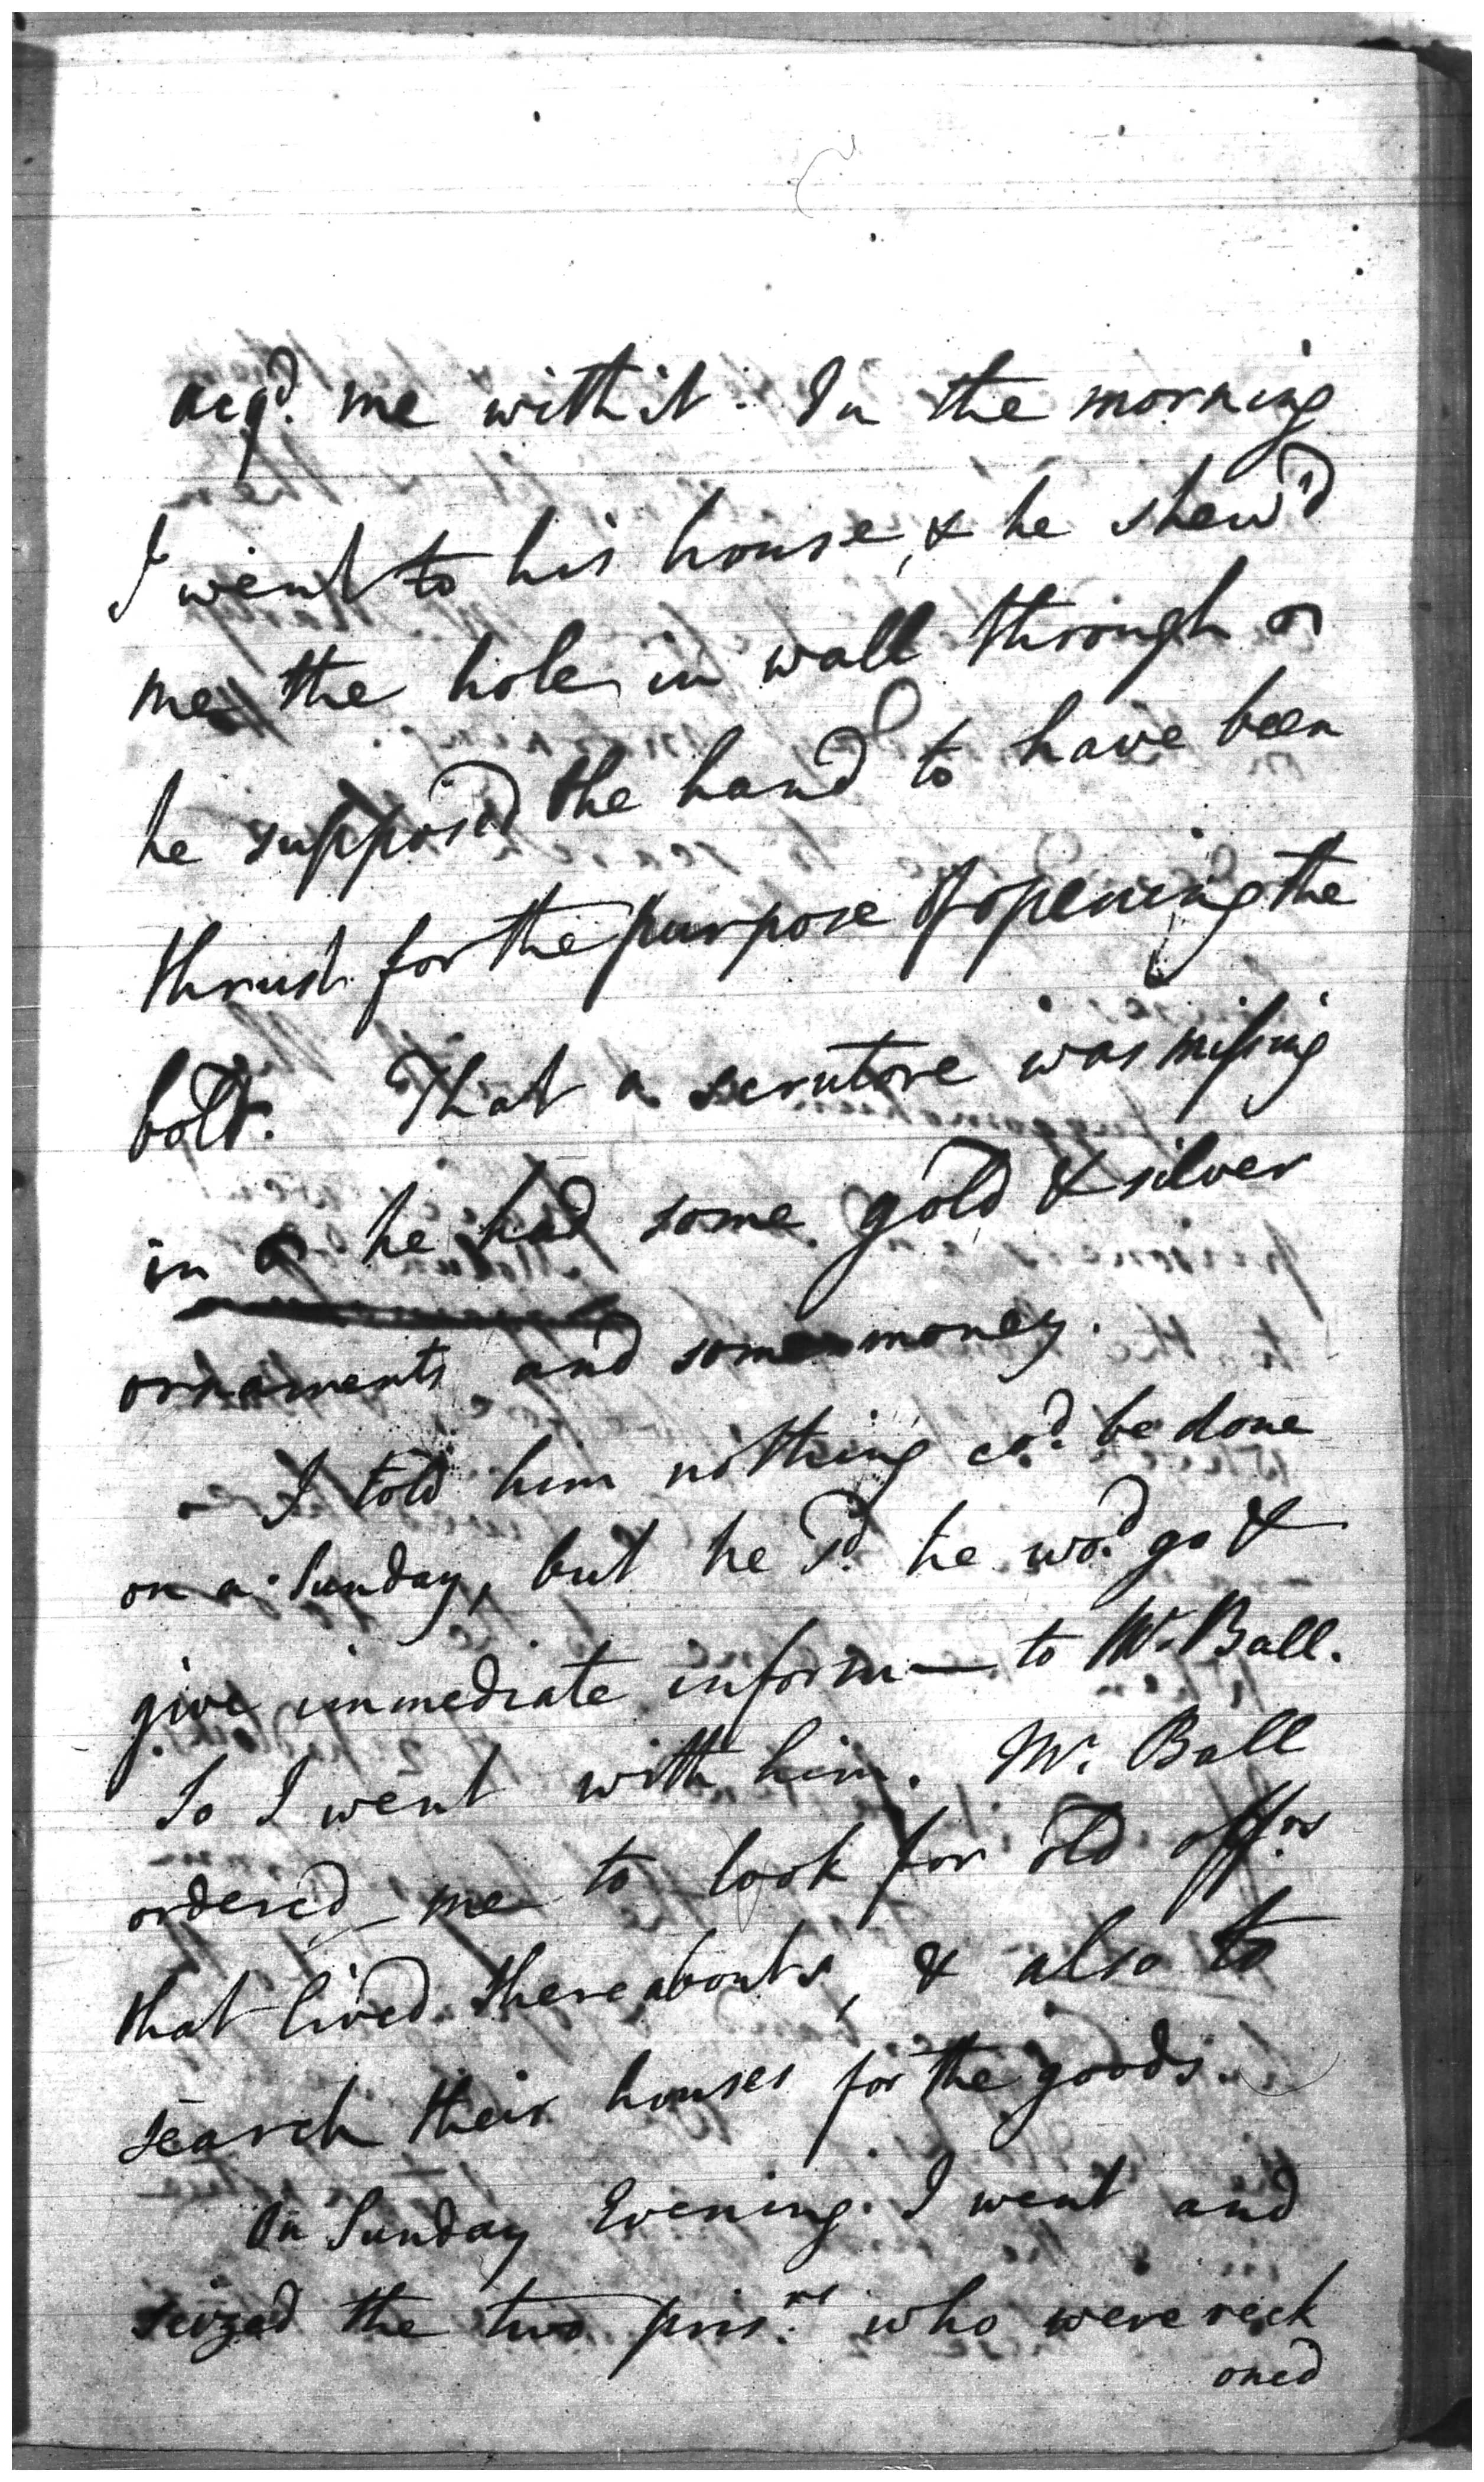 acqd. me with it. In the morning
I went to his house, & he shew'd
me the hole in wall through
he suppos'd the hand to have been
thrust for the purpose of opening the
bolt. That a scrutore was missing
in he had some gold & silver
ornaments and some money.
I told him nothing cod. be done
on a Sunday, but he sd. he wod. go &
give immediate inform— to Mr. Ball.
So I went with him. Mr. Ball
ordered me to look for old offrs
that lived thereabouts, & also to
search their houses for the goods.
On Sunday Evening I went and
seized the two prisrs. who were reck
oned